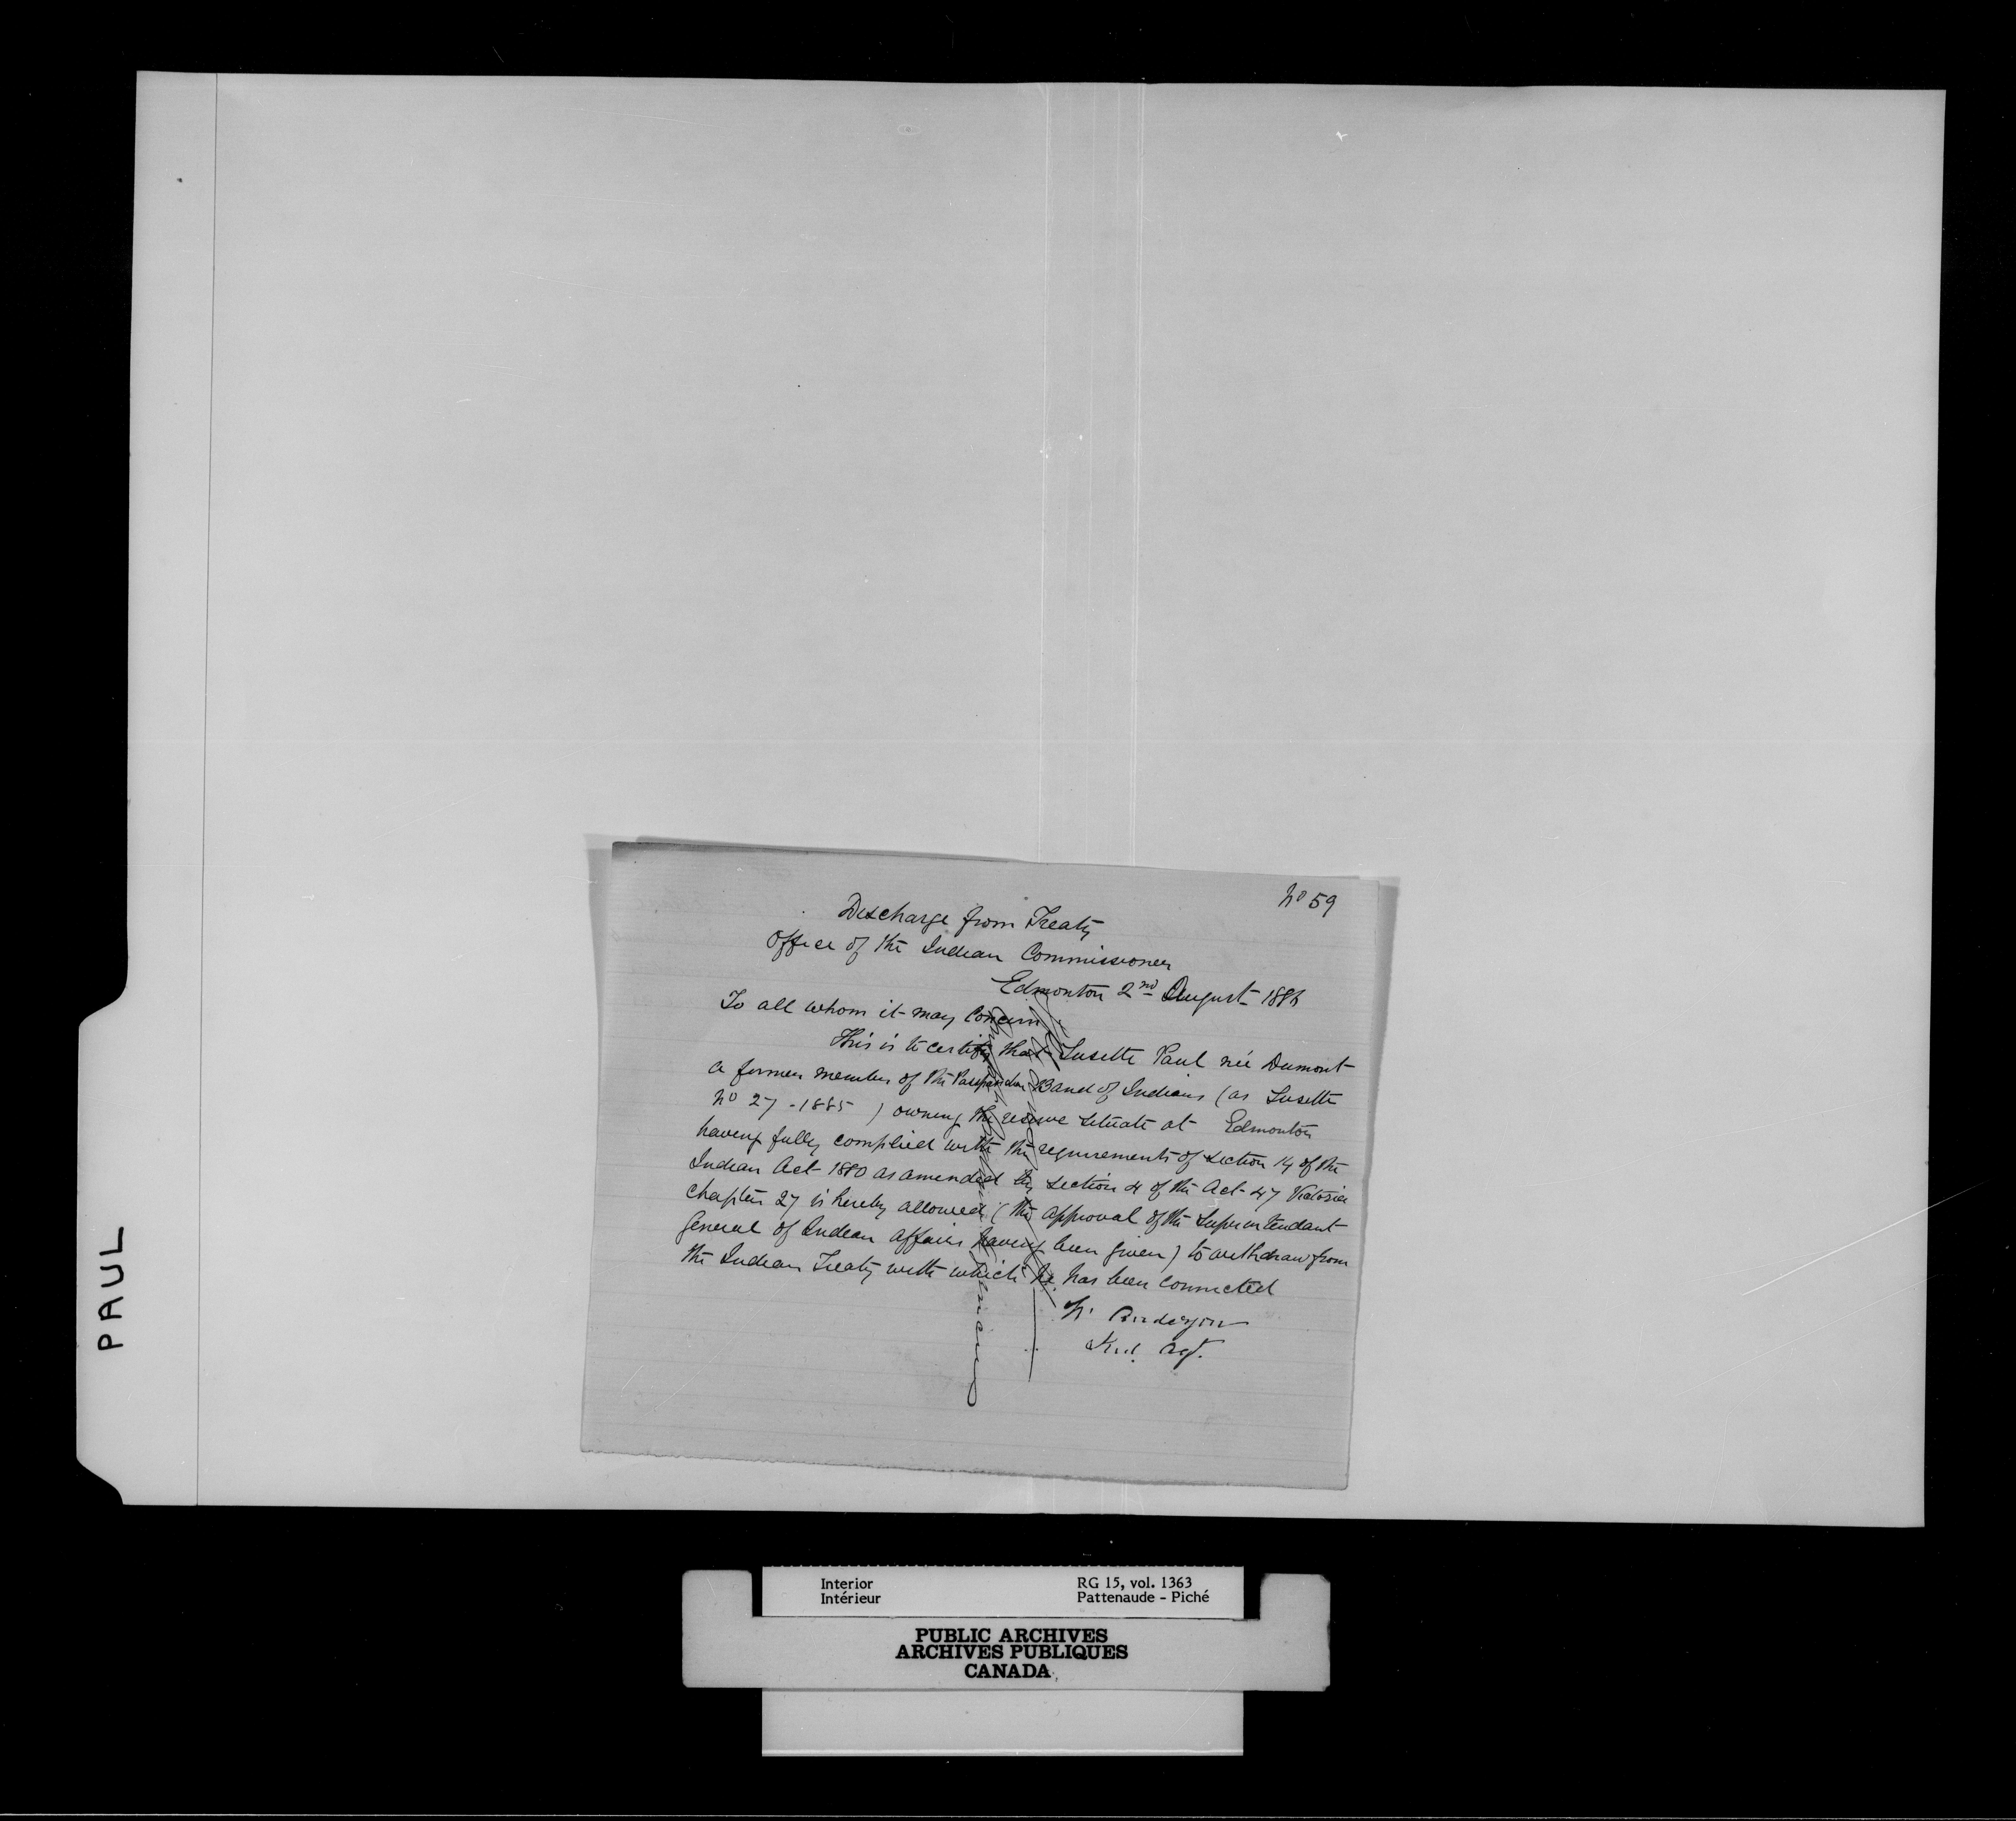 PAUL
No 59
Discharge from Treaty
Office of the Indian Commissioner
Edmonton 2nd August 1886
To all whom it may Concern
This is to certify that Susette Paul née Dumont
a former member of the Band of Indians (as Susette
No 27 - 1885 ) owning the reserve situate at Edmonton
having fully complied with the requirements of section 14 of the
Indian Act 1880 as amended by section 4 of the Act 47 Victoria
chapter 27 is hereby allowed (the approval of the Superintendant
General of Indian Affairs having been given) to withdraw from
the Indian Treaty with which he has been connected
Anderson
Ind. Agt.
Interior
Intérieur
RG 15, vol. 1363
Pattenaude - Piché
PUBLIC ARCHIVES
ARCHIVES PUBLIQUES
CANADA